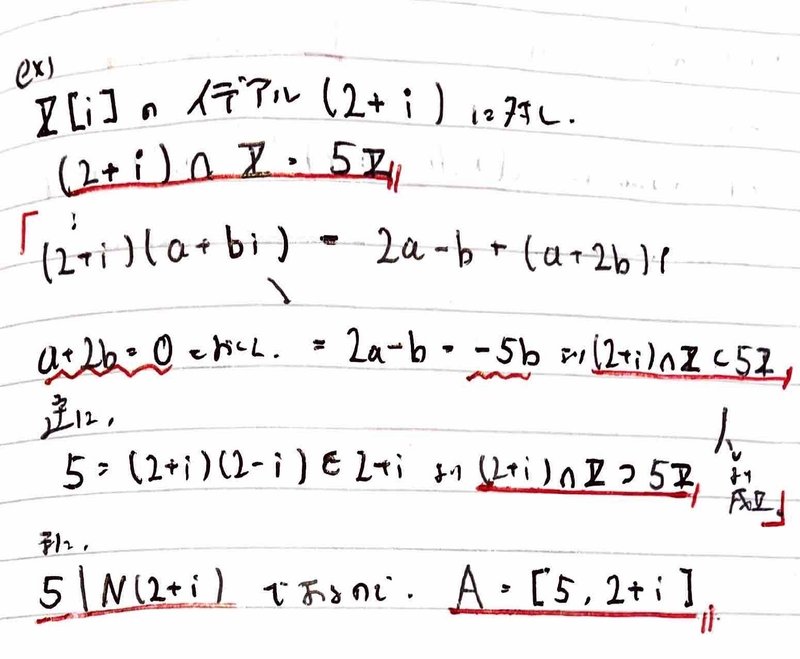 ex)
ℤ[i] の イデアル (2+i) に対し.
(2+i) ∩ ℤ = 5ℤ
「 ∵ (2+i)(a+bi) = 2a-b + (a+2b)i
a+2b=0 とおくと. = 2a-b = -5b より (2+i)∩ℤ ⊂ 5ℤ
逆に,
5 = (2+i)(2-i) ∈ 2+i より (2+i)∩ℤ ⊃ 5ℤ, より 成立」
5 | N(2+i) であるので. A = [5, 2+i]